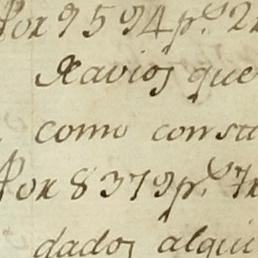 Por 9594 p.s 2r
Xavios que
como consta
Por 8379 p.s 7r
dados alqui